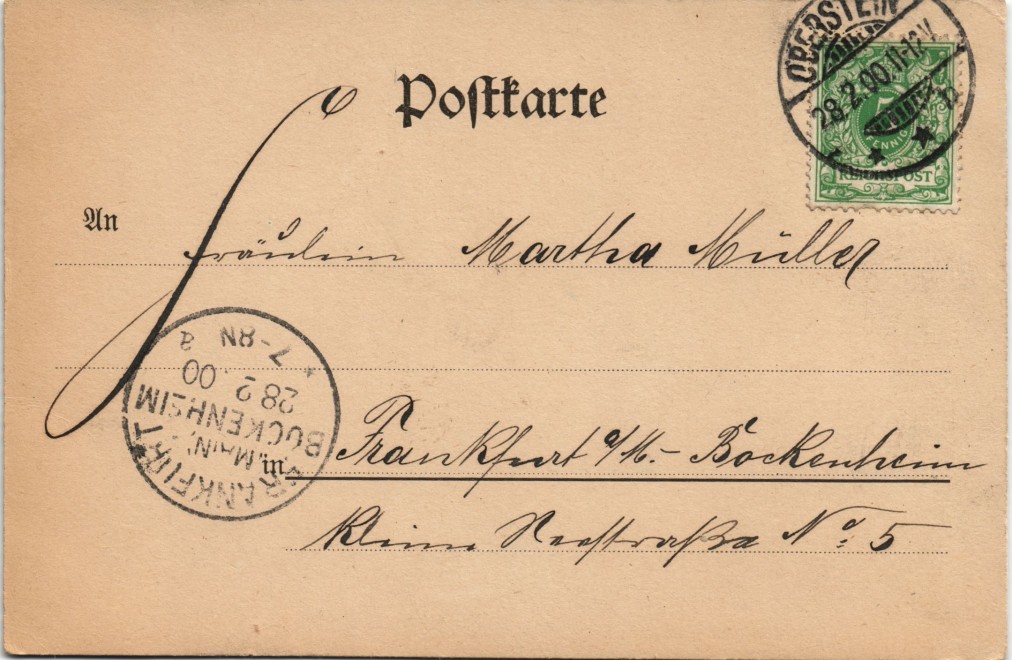 Postkarte
OBERSTEIN
28.2.00.11-12V.
PFENNIG
REICHSPOST
An
Fräulein Martha Müller
FRANKFURT
(MAIN)
BOCKENHEIM
28 2.00
7-8N
in Frankfurt a/M.- Bockenheim
kleine Seestraße No. 5